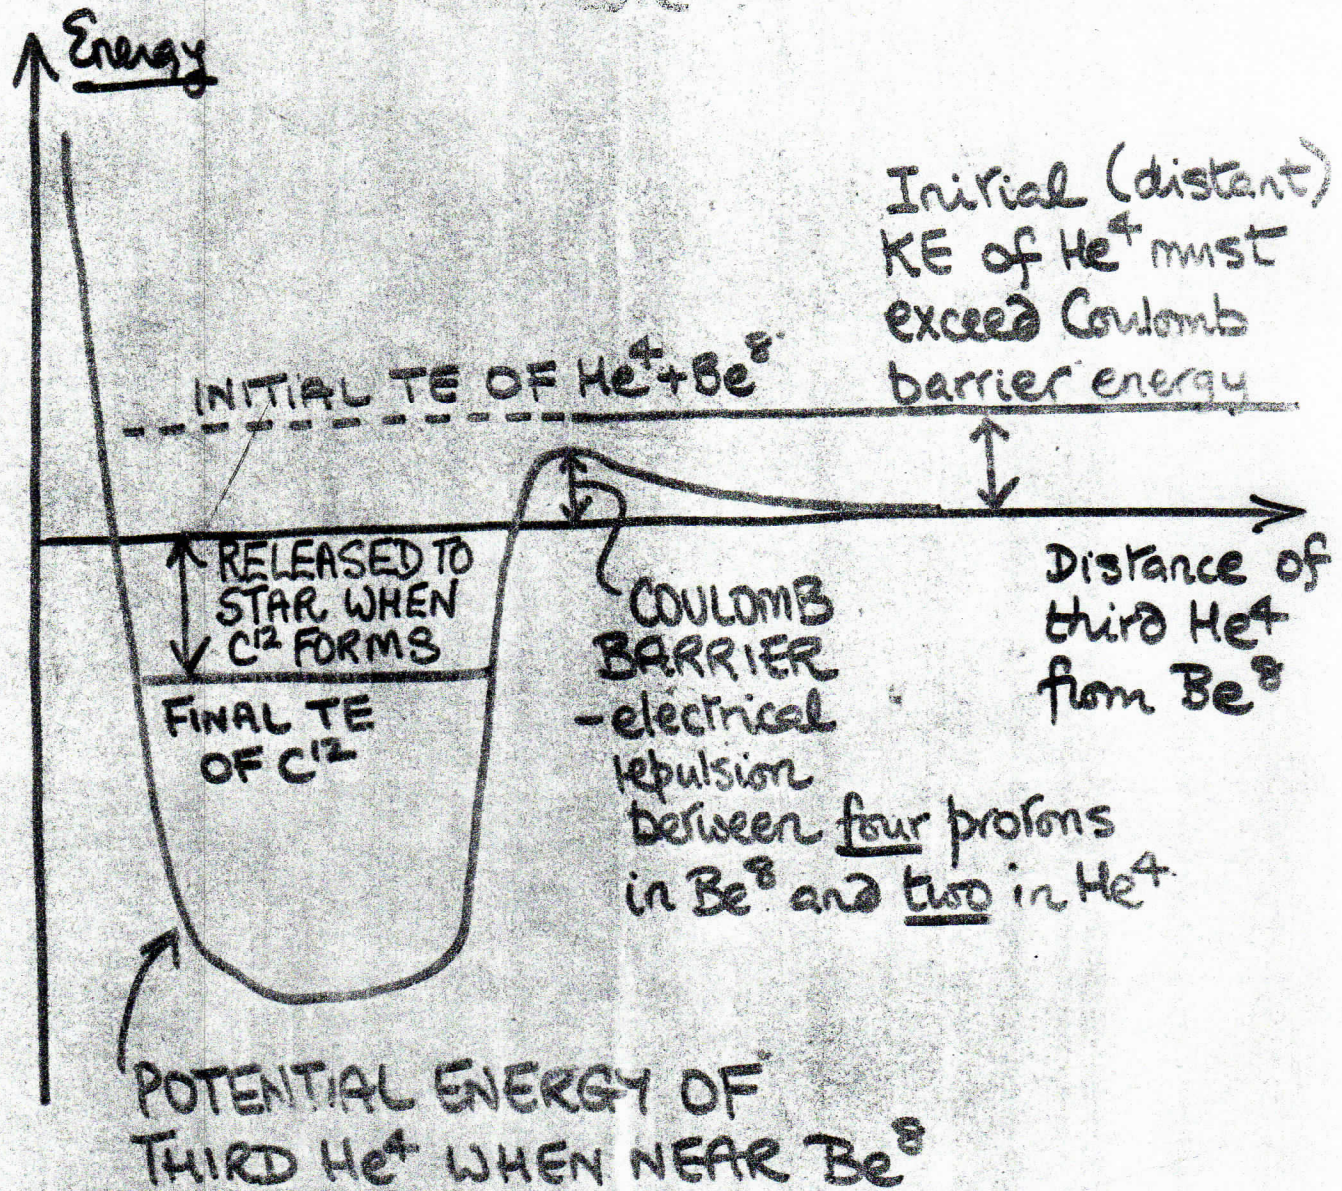 Energy
Initial (distant)
KE of He⁴ must
exceed Coulomb
barrier energy
INITIAL TE OF He⁴+Be⁸
RELEASED TO
STAR WHEN
C¹² FORMS
FINAL TE
OF C¹²
COULOMB
BARRIER
-electrical
repulsion
between four protons
in Be⁸ and two in He⁴
Distance of
third He⁴
from Be⁸
POTENTIAL ENERGY OF
THIRD He⁴ WHEN NEAR Be⁸